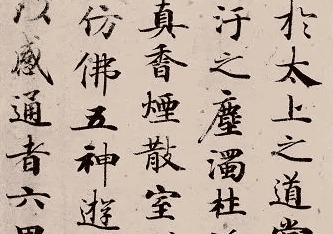 於太上之道當
汙之塵濁柱
真香煙散室
仿佛五神遊
以感通者六甲